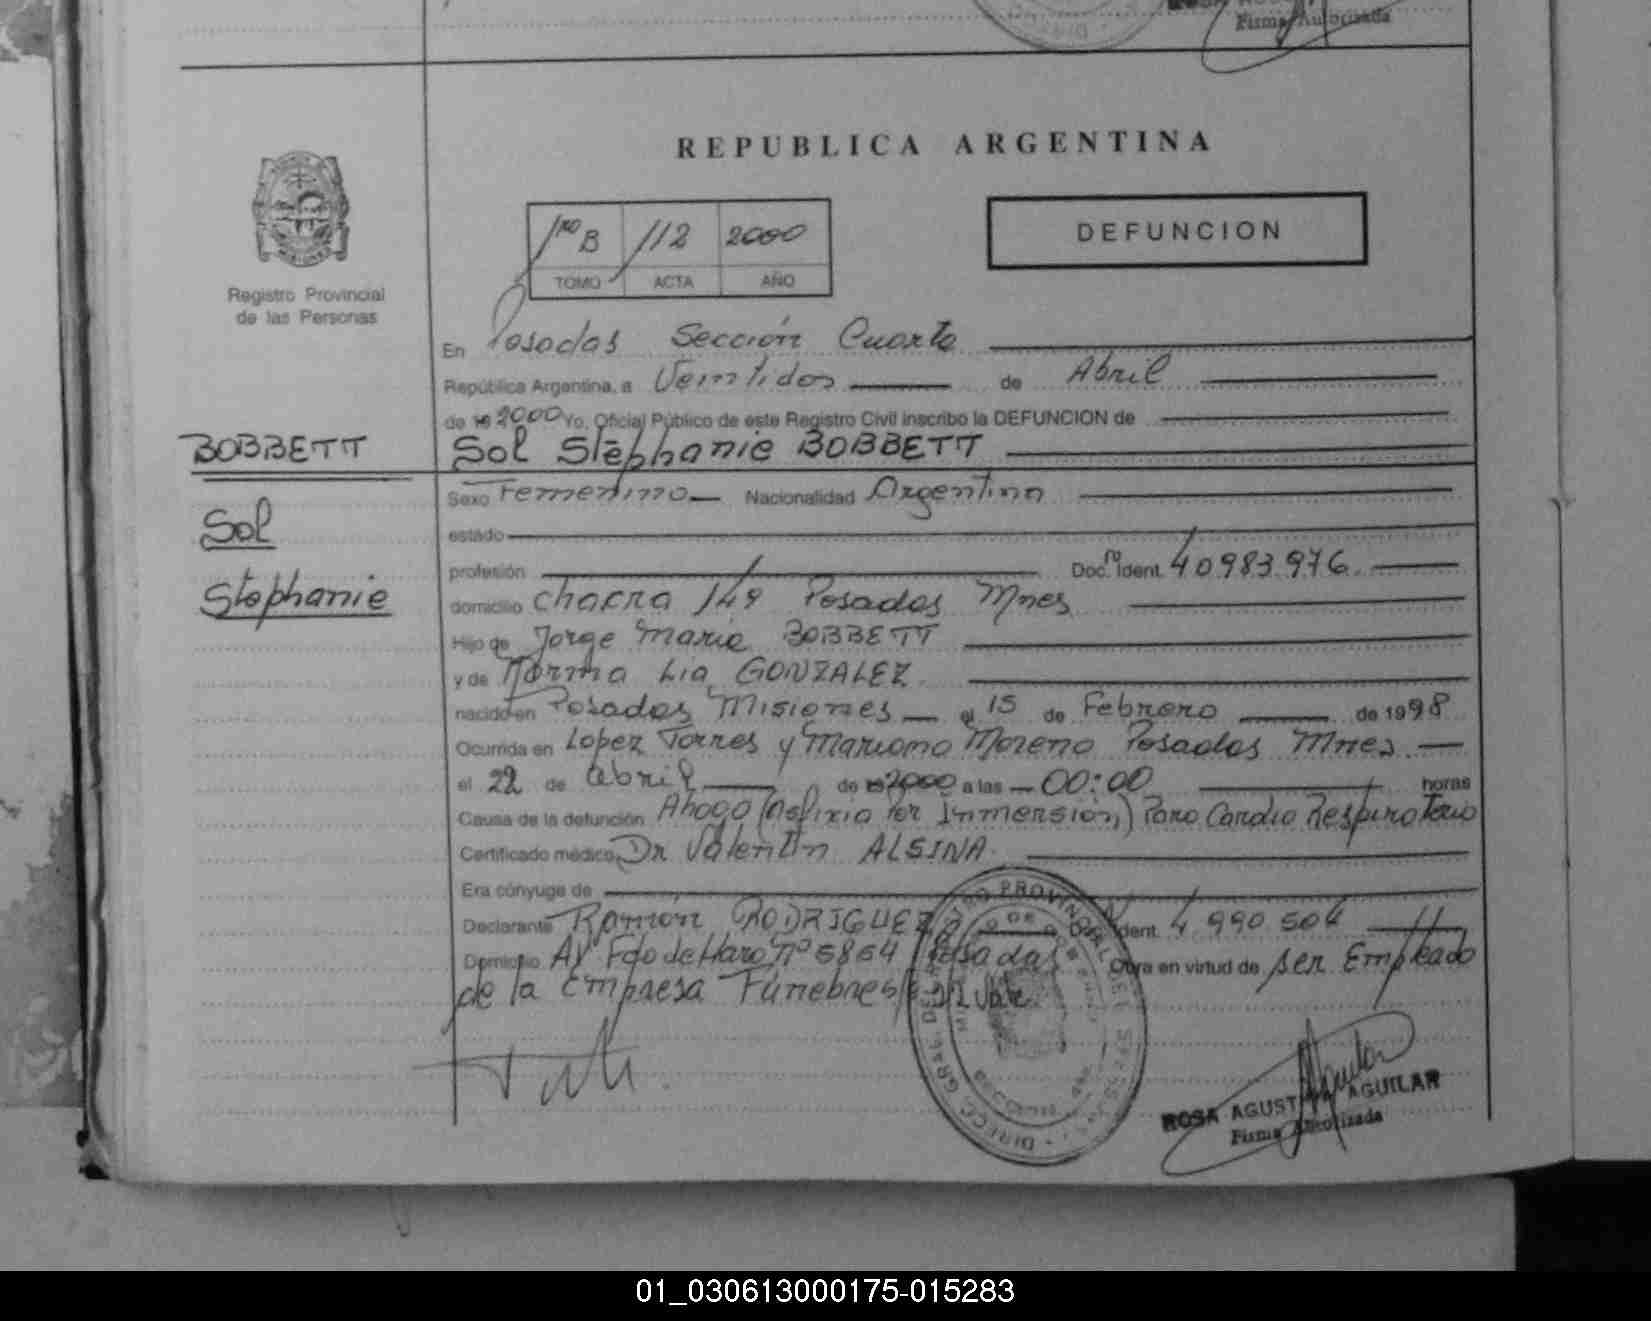 Firma Autorizada
REPUBLICA ARGENTINA
1ro B 112 2000
TOMO ACTA AÑO
DEFUNCION
Registro Provincial
de las Personas
En Posadas Sección Cuarta
República Argentina, a Veintidos de Abril
de 19 2000 Yo, Oficial Público de este Registro Civil inscribo la DEFUNCION de
BOBBETT
Sol Stephanie BOBBETT
Sol
Stephanie
Sexo Femenino Nacionalidad Argentina
estado
profesión Doc. Ident. nº 40983.976
domicilio Chacra 149 Posadas Mnes
Hijo de Jorge Maria BOBBETT
y de Norma Lia GONZALEZ
nacido en Posadas Misiones el 15 de Febrero de 1998
Ocurrida en Lopez Torres y Mariano Moreno Posadas Mnes
el 22 de abril de 19 2000 a las 00:00 horas
Causa de la defunción Ahogo (asfixia Por Inmersión) Paro Cardio Respiratorio
Certificado médico Dr Valentin ALSINA
Era cónyuge de
Declarante Ramón RODRIGUEZ Doc. Ident. 4.990.504
Domicilio Av Fdo de Haro Nº 5864 Posadas Obra en virtud de ser Empleado
de la Empresa Fúnebres
ROSA AGUSTINA AGUILAR
Firma Autorizada
01_030613000175-015283